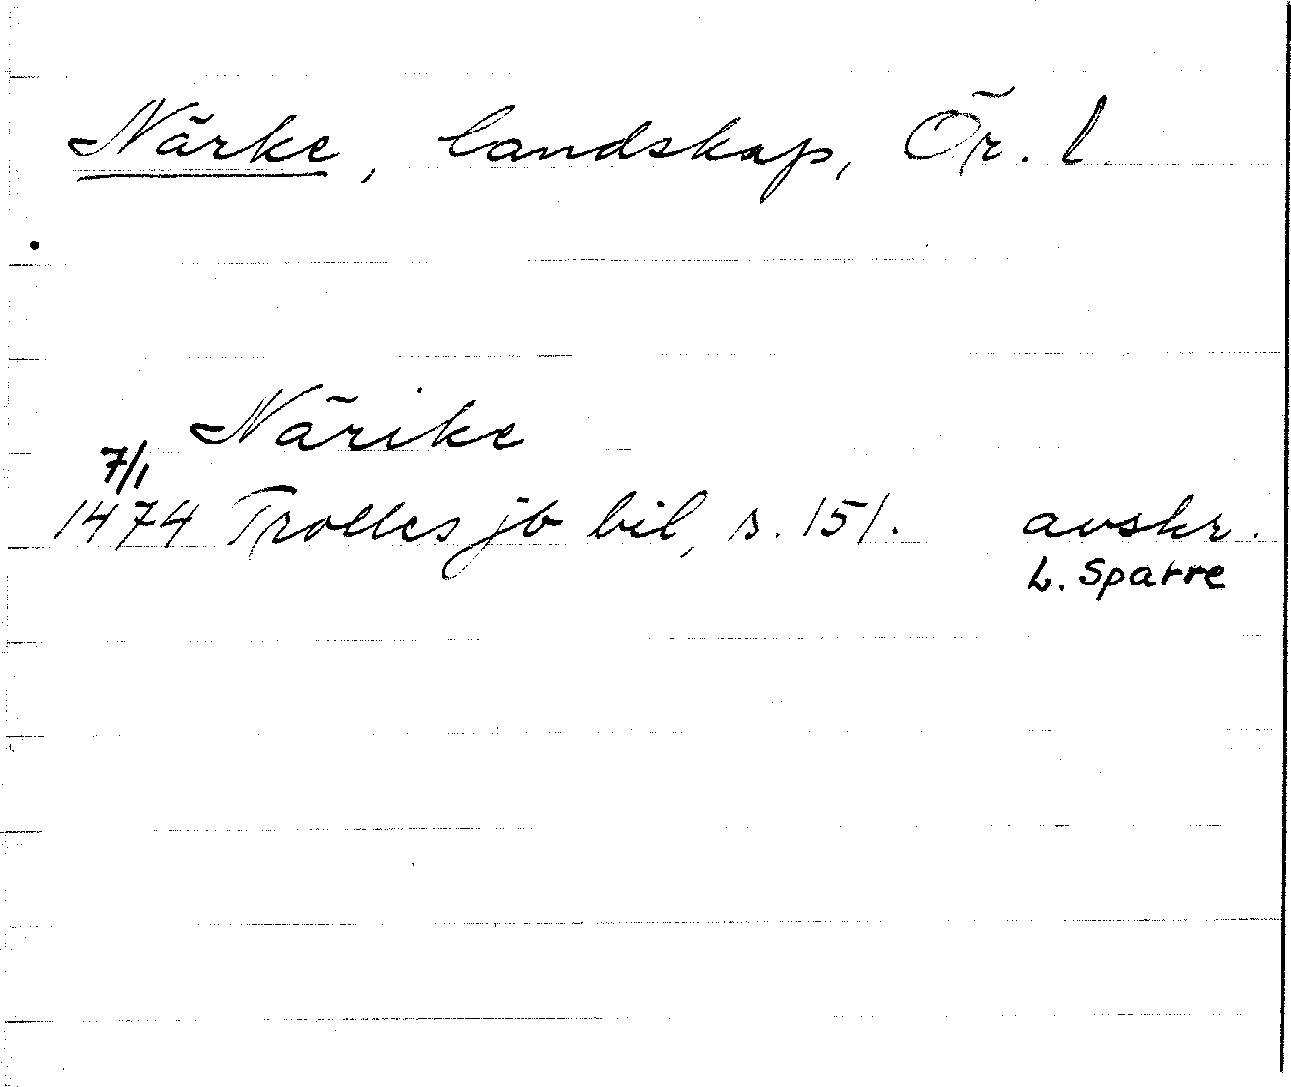 Närke, landskap, Ör. l
Närike
7/1
1474 Trolles jb bil, s. 151. avskr.
L. Sparre